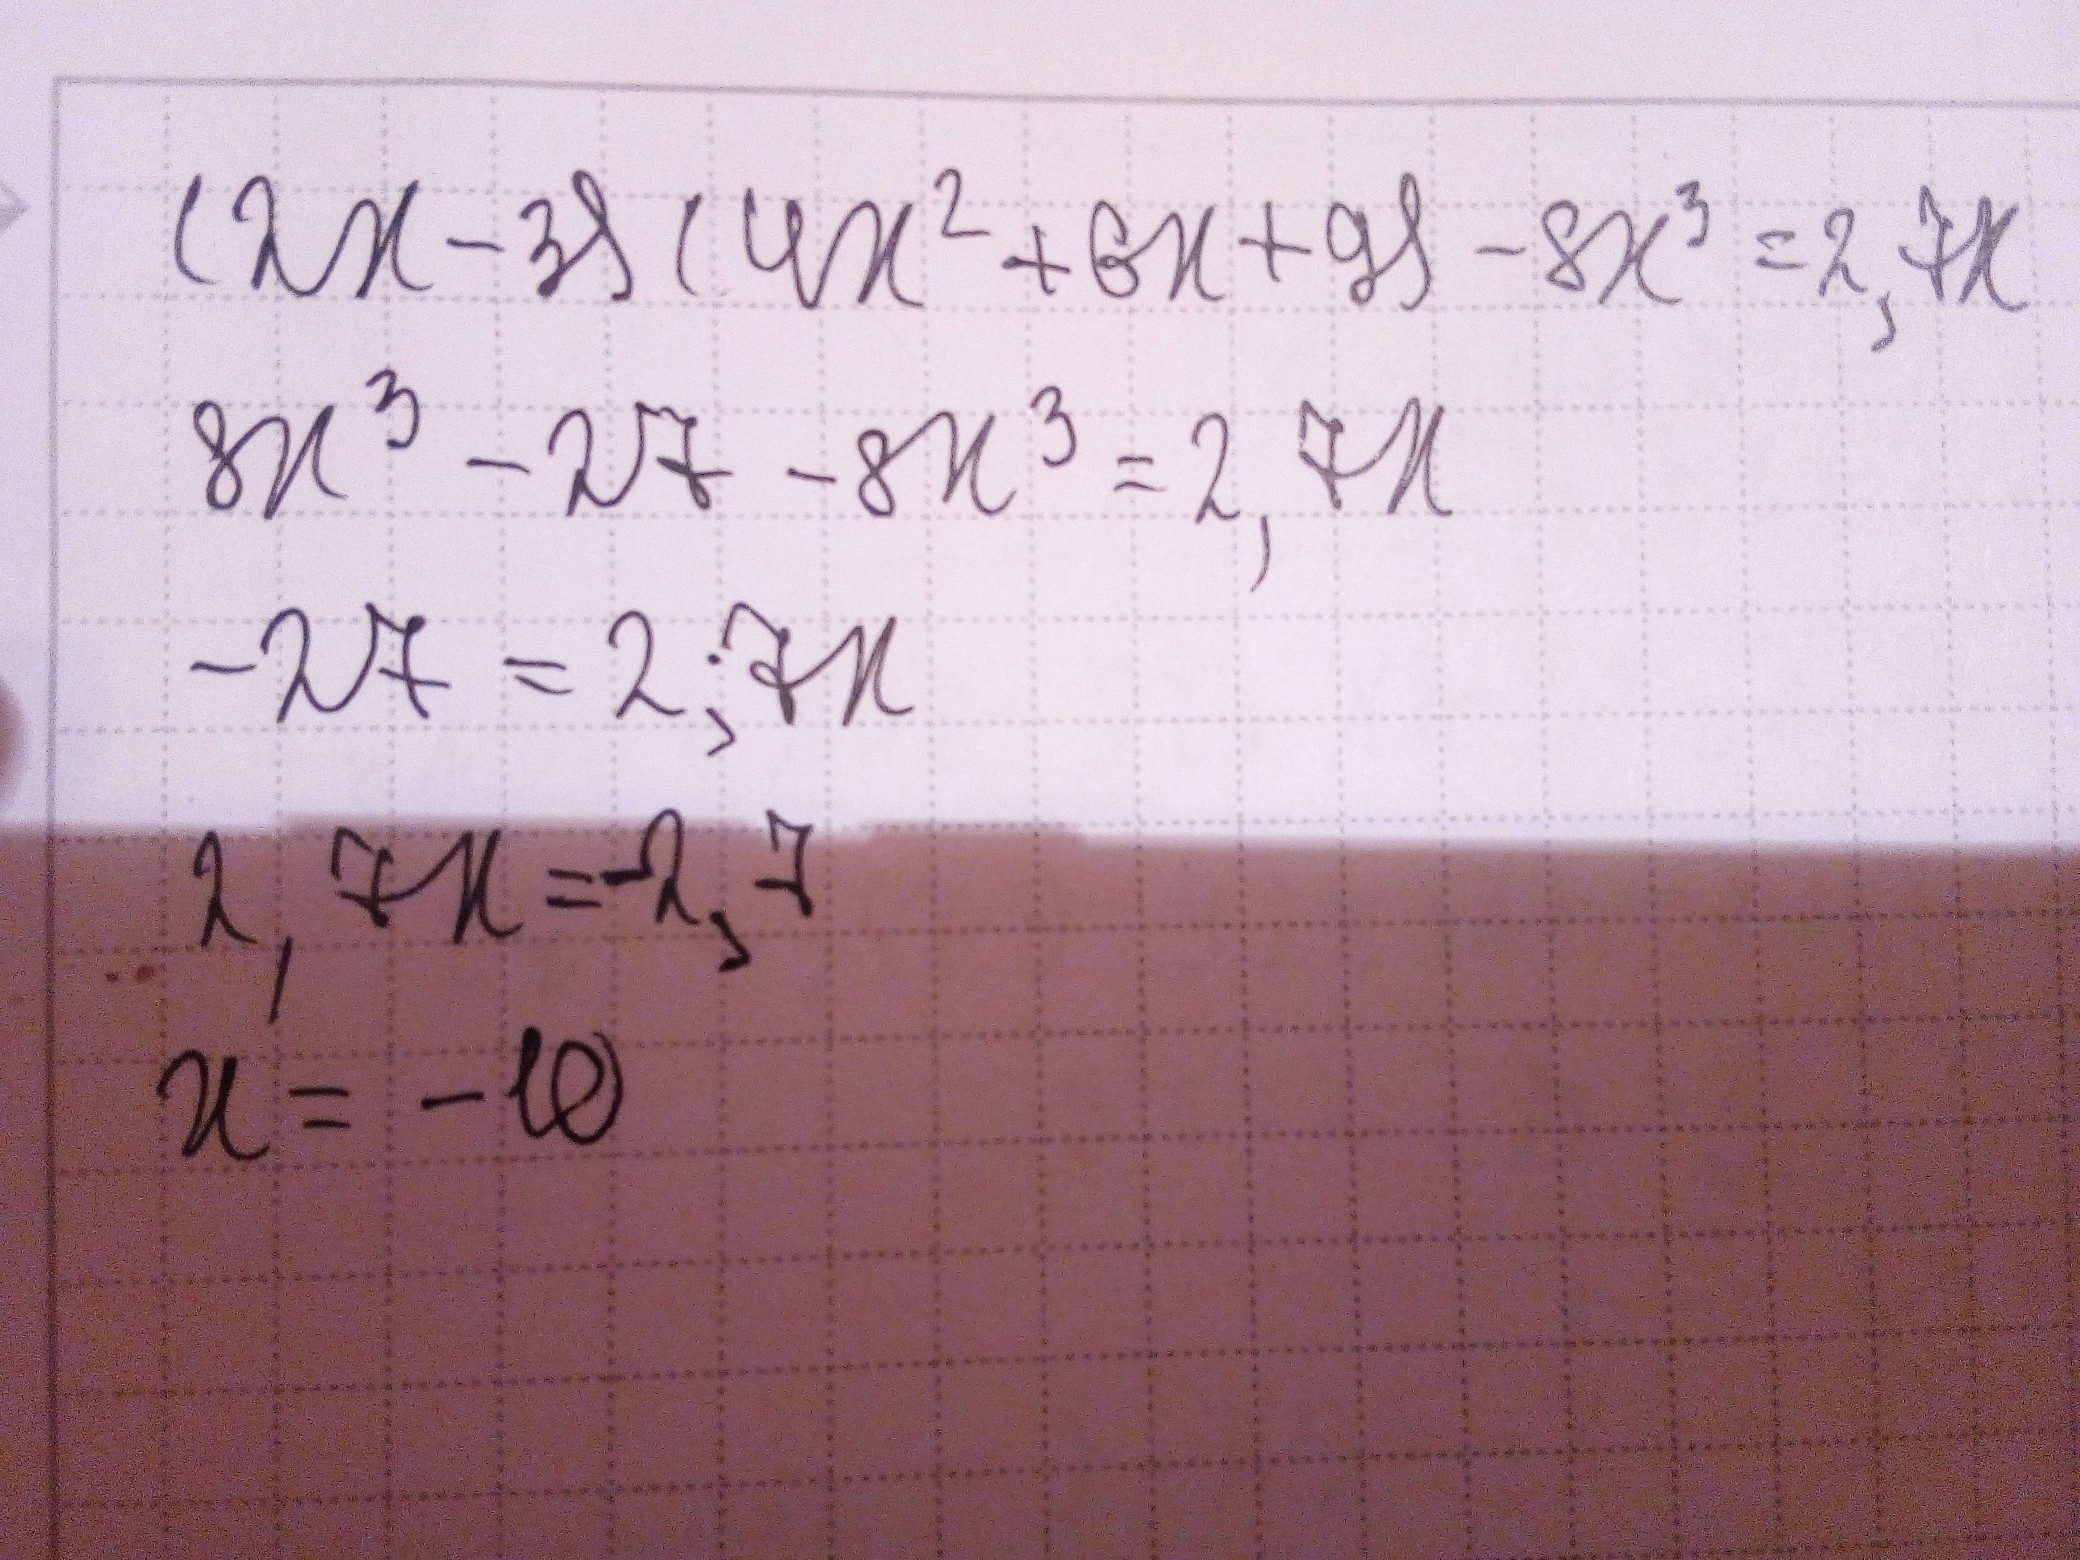 (2x-3)(4x²+6x+9)-8x³=2,7x
8x³-27-8x³=2,7x
-27=2,7x
2,7x=-2,7
x=-10